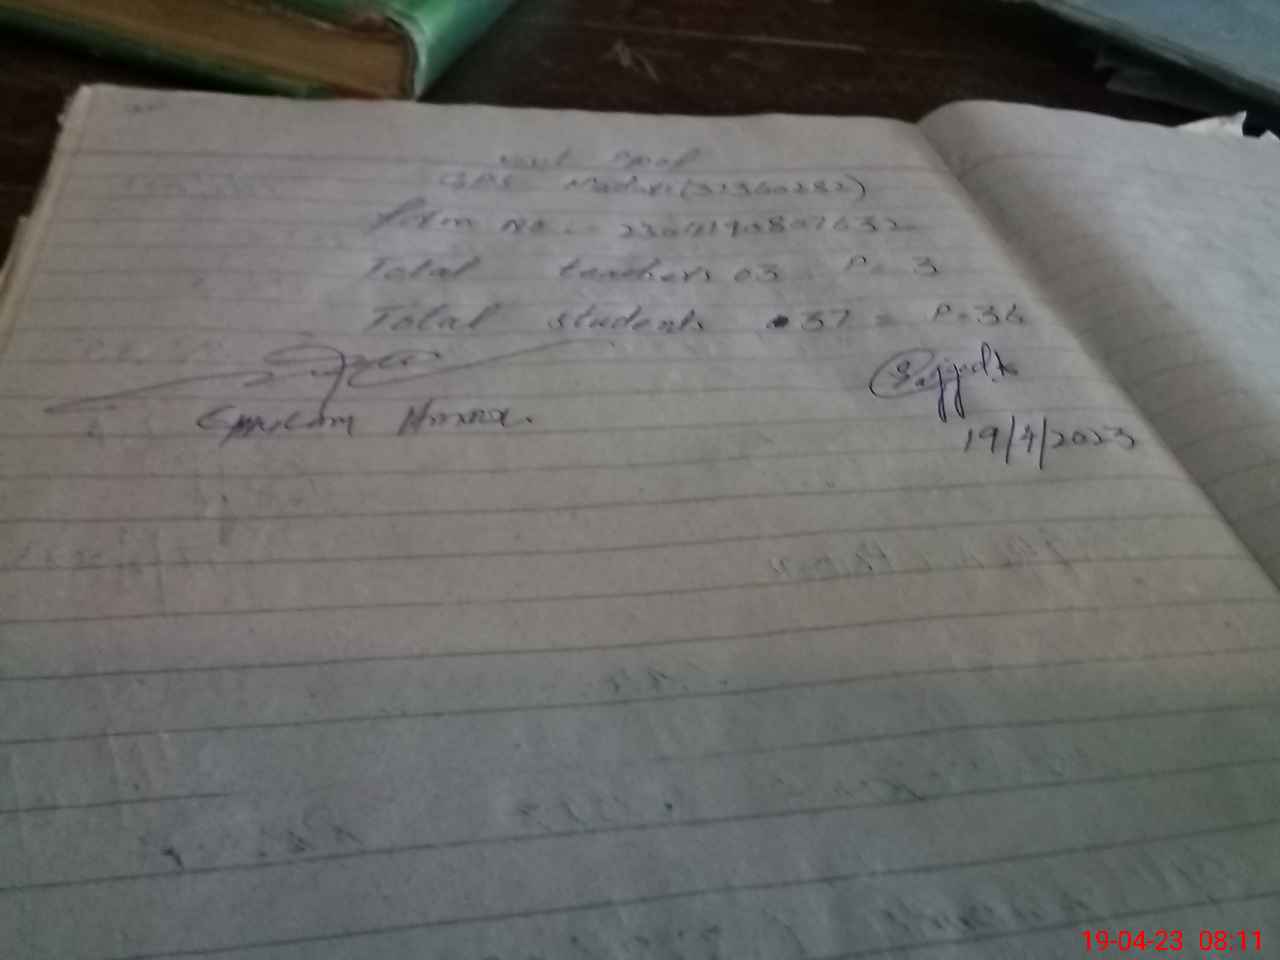 Visit Proof
GPS (32360282)
Form no. = 2304190807632
Total teachers 03 P= 3
Total students 37 = P=36
Ghulam
19/4/2023
19-04-23 08:11